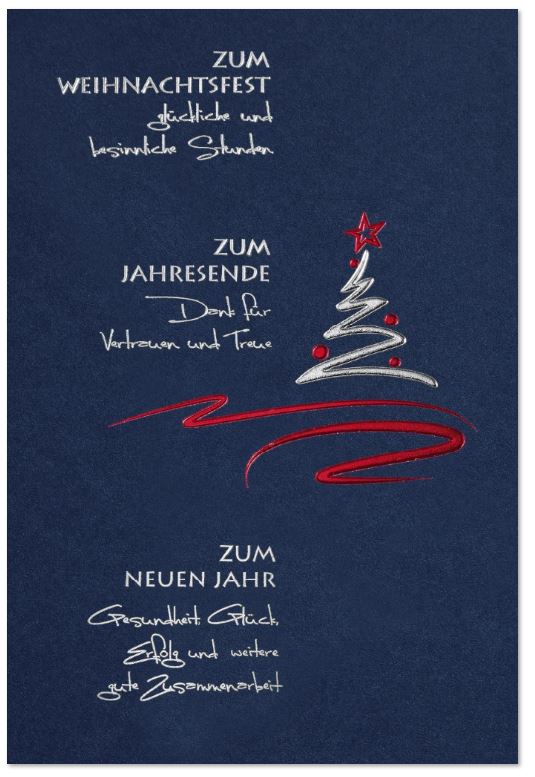 ZUM
WEIHNACHTSFEST
glückliche und
besinnliche Stunden
ZUM
JAHRESENDE
Dank für
Vertrauen und Treue
ZUM
NEUEN JAHR
Gesundheit, Glück,
Erfolg und weitere
gute Zusammenarbeit